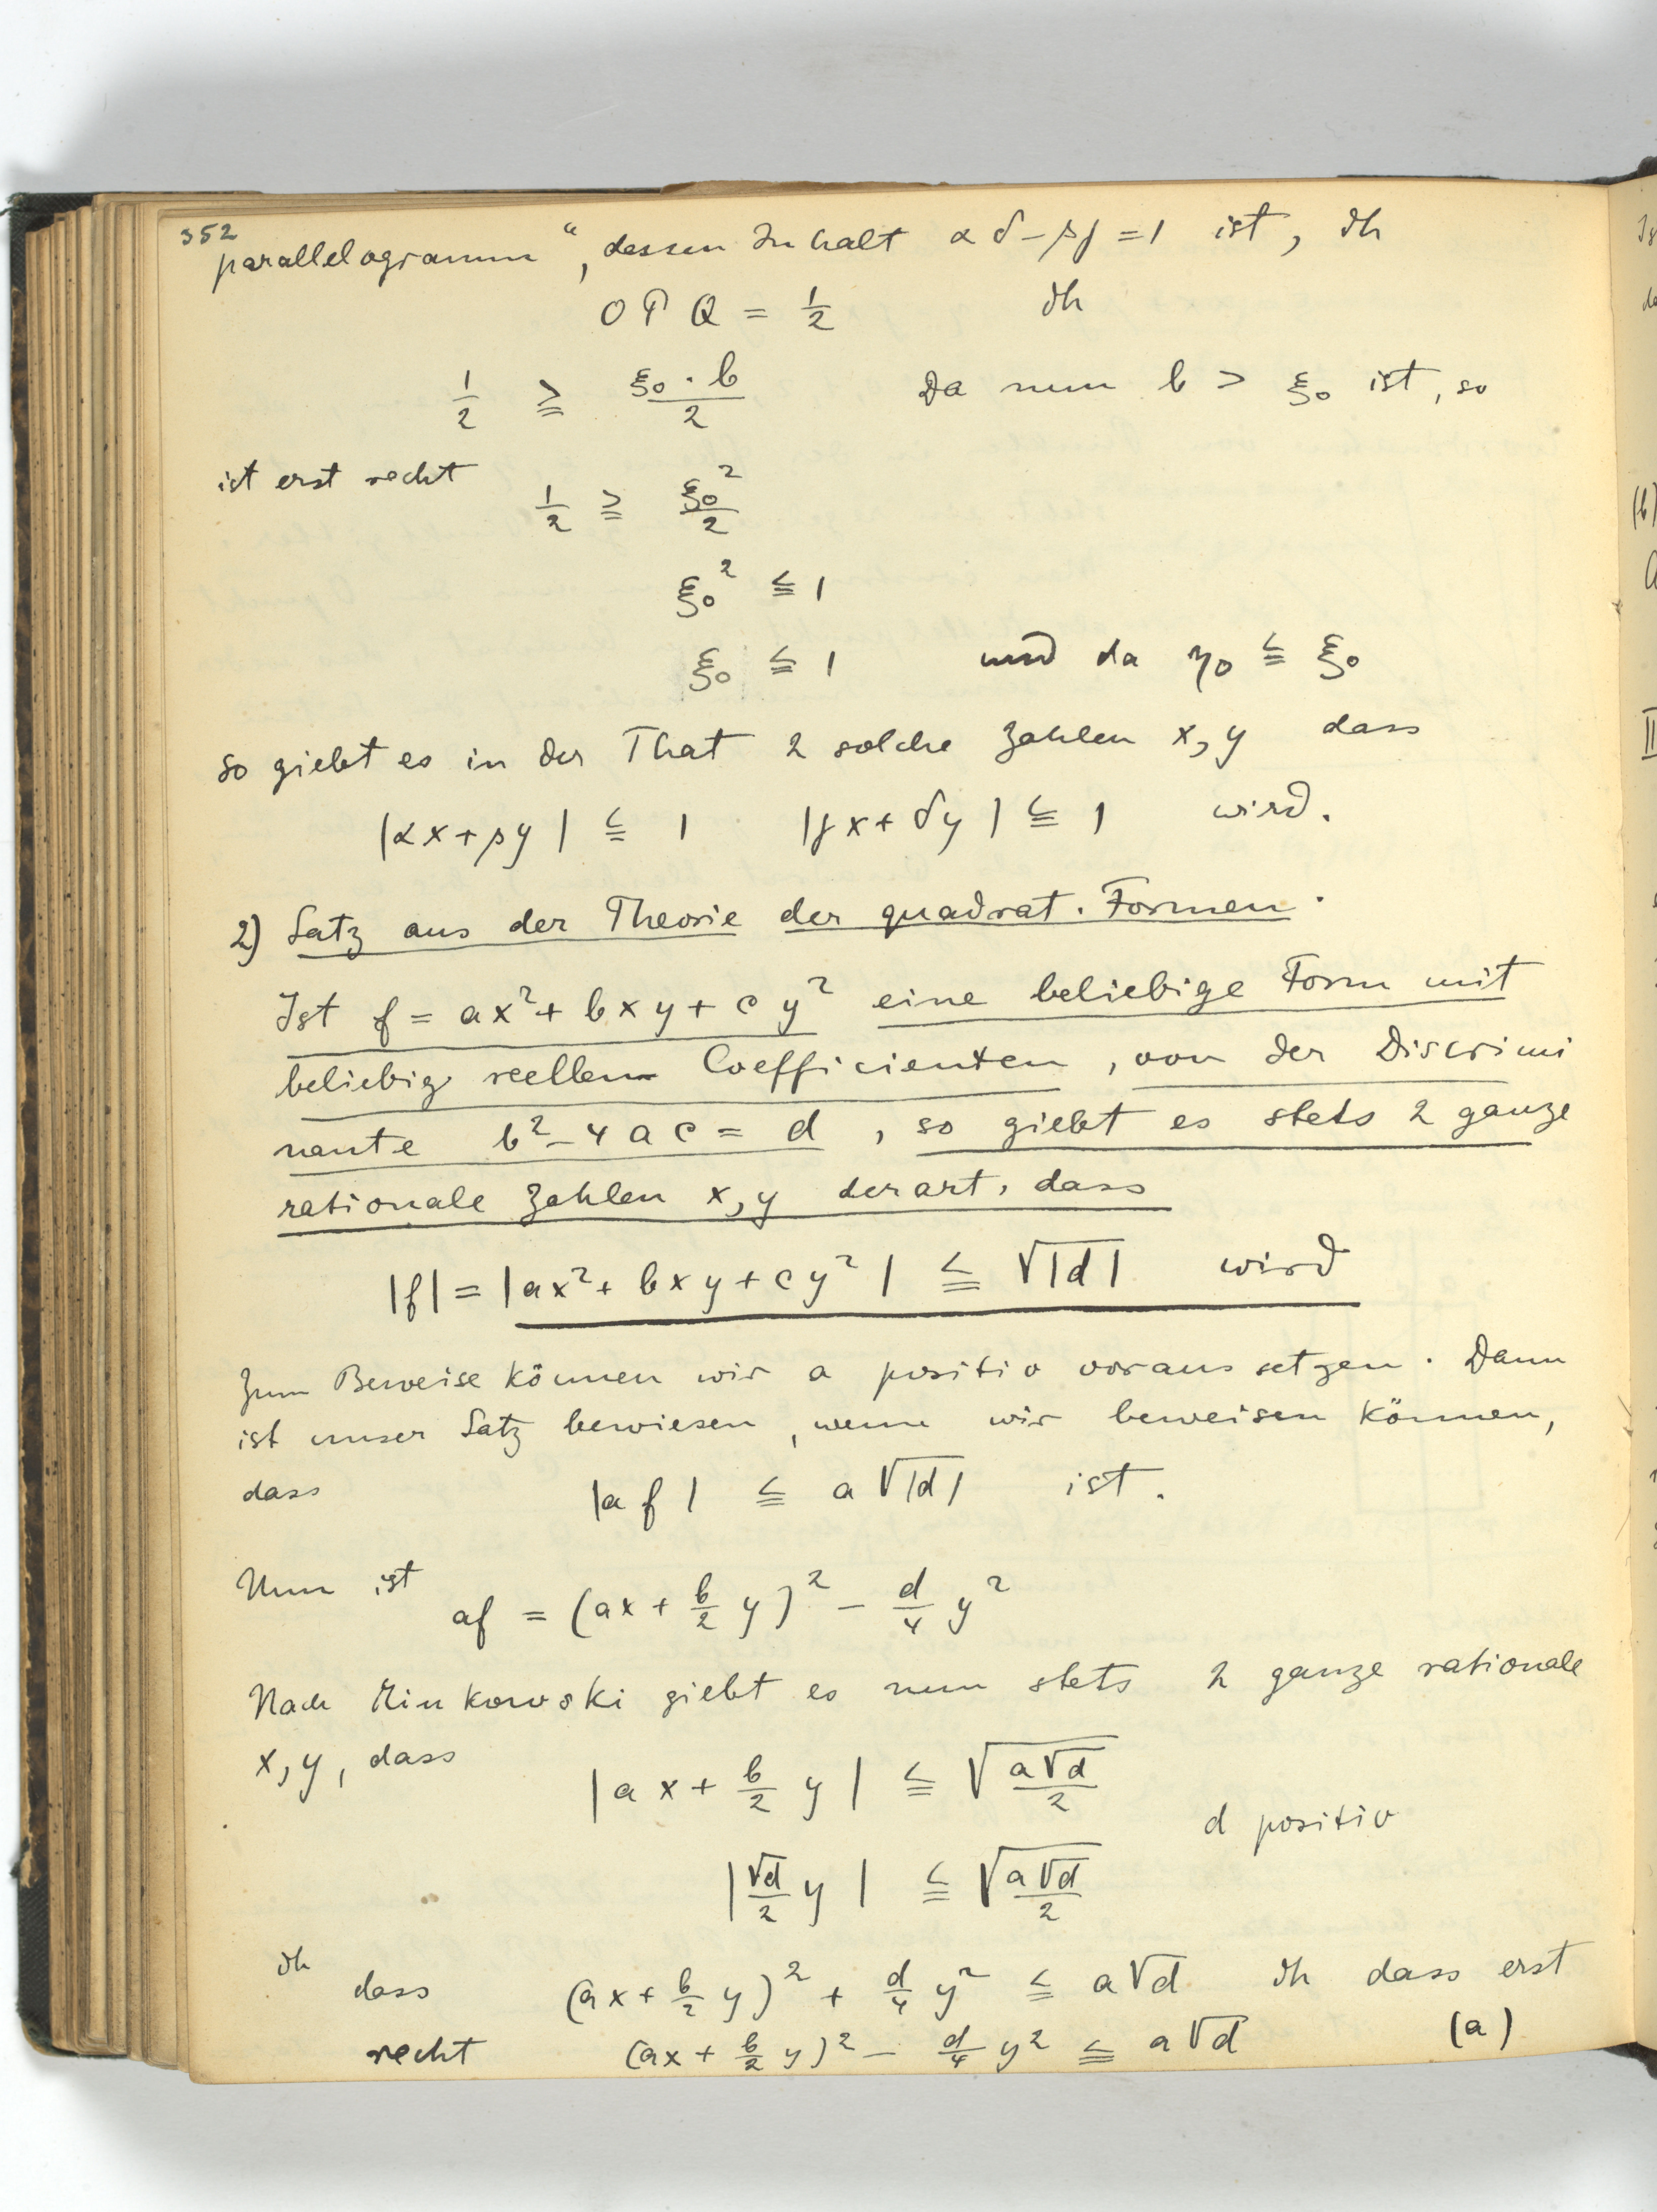 352
parallelogramm“, dessen Inhalt αδ-βγ=1 ist, dh
OPQ = 1/2 dh
1/2 ≧ ξ₀·b/2 Da nun b > ξ₀ ist, so
ist erst recht 1/2 ≧ ξ₀²/2
ξ₀² ≦ 1
ξ₀ ≦ 1 und da η₀ ≦ ξ₀
so giebt es in der That 2 solche Zahlen x, y dass
|αx+βy| ≦ 1 |γx+δy| ≦ 1 wird.
2) Satz aus der Theorie der quadrat. Formen.
Ist f = ax²+bxy+cy² eine beliebige Form mit
beliebig reellen Coefficienten, von der Discrimi
nante b²-4ac = d, so giebt es stets 2 ganze
rationale Zahlen x, y derart, dass
|f| = |ax²+bxy+cy²| ≦ √|d| wird
Zum Beweise können wir a positiv voraussetzen. Dann
ist unser Satz bewiesen, wenn wir beweisen können,
dass |af| ≦ a√|d| ist.
Nun ist af = (ax+b/2 y)² - d/4 y²
Nach Minkowski giebt es nun stets 2 ganze rationale
x, y, dass |ax+b/2 y| ≦ √(a√d/2)
d positiv
|√d/2 y| ≦ √(a√d/2)
dh dass (ax+b/2 y)² + d/4 y² ≦ a√d dh dass erst
recht (ax+b/2 y)² - d/4 y² ≦ a√d (a)